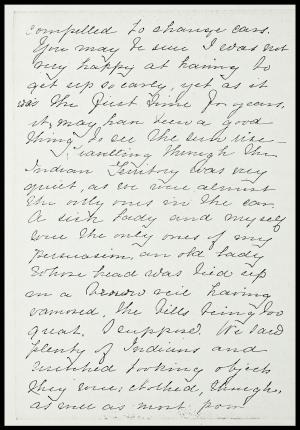 compelled to change cars.
You may be sure I was not
very happy at having to
get up so early, yet as it
was the first time for years,
it may have been a good
thing to see the sun rise—
Travelling through the
Indian Territory was very
quiet, as we were almost
the only ones in the car.
A sick lady and myself
were the only ones of my
persuasion, an old lady
whose head was tied up
in a brown veil having
vamosed, the bills being too
great, I suppose. We saw
plenty of Indians and
wretched looking objects
they were; clothed, though,
as well as most poor